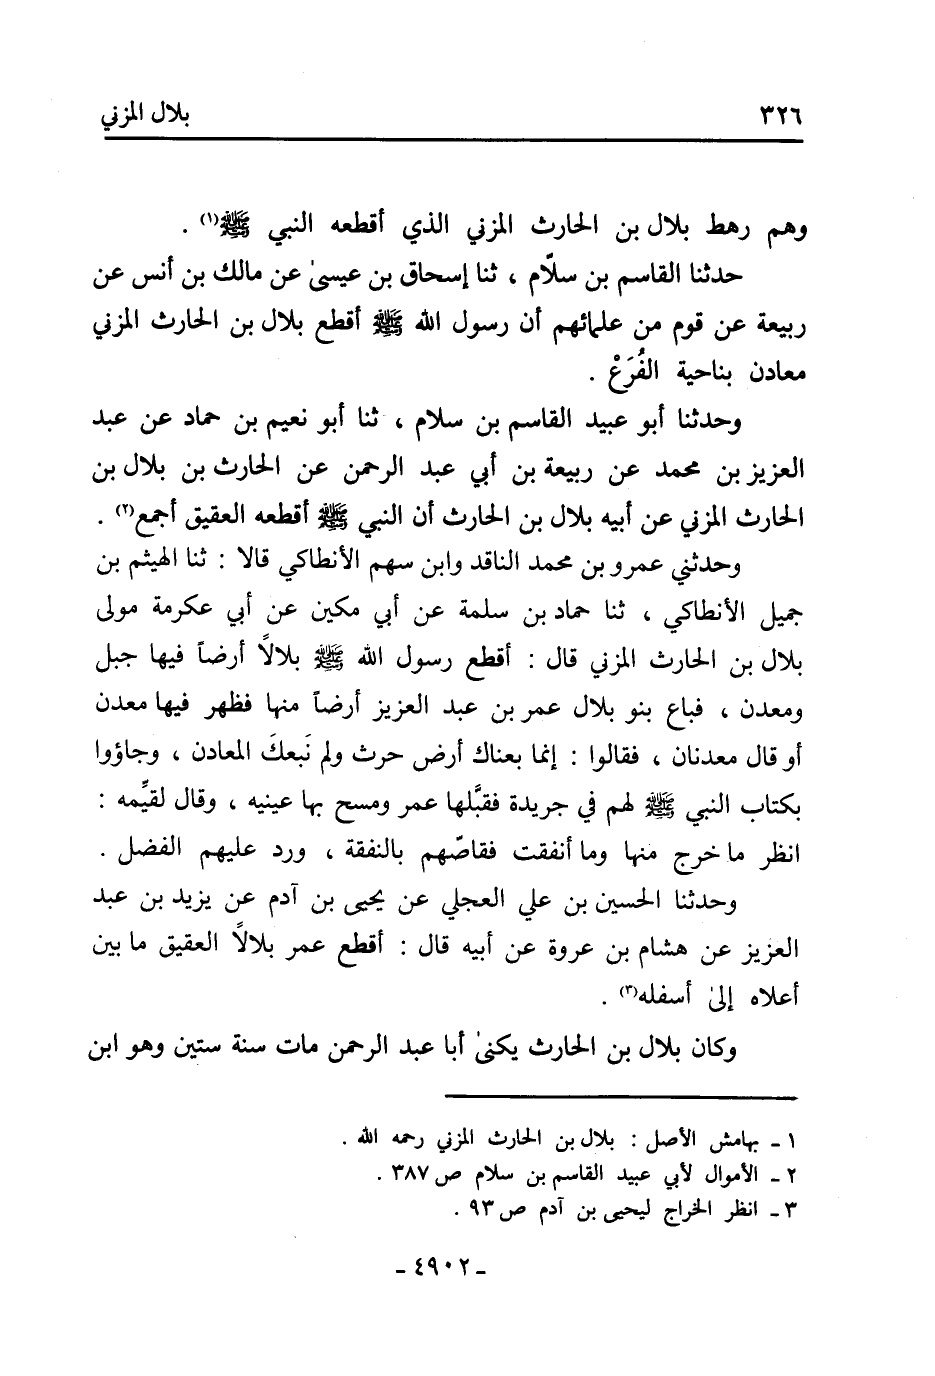 ٣٢٦ بلال المزني
وهم رهط بلال بن الحارث المزني الذي أقطعه النبي ﷺ(١) .
حدثنا القاسم بن سلّام ، ثنا إسحاق بن عيسىٰ عن مالك بن أنس عن
ربيعة عن قوم من علمائهم أن رسول الله ﷺ أقطع بلال بن الحارث المزني
معادن بناحية الفُرَعْ .
وحدثنا أبو عبيد القاسم بن سلام ، ثنا أبو نعيم بن حماد عن عبد
العزيز بن محمد عن ربيعة بن أبي عبد الرحمن عن الحارث بن بلال بن
الحارث المزني عن أبيه بلال بن الحارث أن النبي ﷺ أقطعه العقيق أجمع(٢) .
وحدثني عمرو بن محمد الناقد وابن سهم الأنطاكي قالا : ثنا الهيثم بن
جميل الأنطاكي ، ثنا حماد بن سلمة عن أبي مكين عن أبي عكرمة مولى
بلال بن الحارث المزني قال : أقطع رسول الله ﷺ بلالًا أرضاً فيها جبل
ومعدن ، فباع بنو بلال عمر بن عبد العزيز أرضاً منها فظهر فيها معدن
أو قال معدنان ، فقالوا : إنما بعناك أرض حرث ولم نَبعكَ المعادن ، وجاؤوا
بكتاب النبي ﷺ لهم في جريدة فقبَّلها عمر ومسح بها عينيه ، وقال لقيِّمه :
انظر ما خرج منها وما أنفقت فقاصّهم بالنفقة ، ورد عليهم الفضل .
وحدثنا الحسين بن علي العجلي عن يحيى بن آدم عن يزيد بن عبد
العزيز عن هشام بن عروة عن أبيه قال : أقطع عمر بلالًا العقيق ما بين
أعلاه إلىٰ أسفله(٣) .
وكان بلال بن الحارث يكنىٰ أبا عبد الرحمن مات سنة ستين وهو ابن
١ ـ بهامش الأصل : بلال بن الحارث المزني رحمه الله .
٢ ـ الأموال لأبي عبيد القاسم بن سلام ص ٣٨٧ .
٣ ـ انظر الخراج ليحيى بن آدم ص ٩٣ .
ـ ٤٩٠٢ ـ